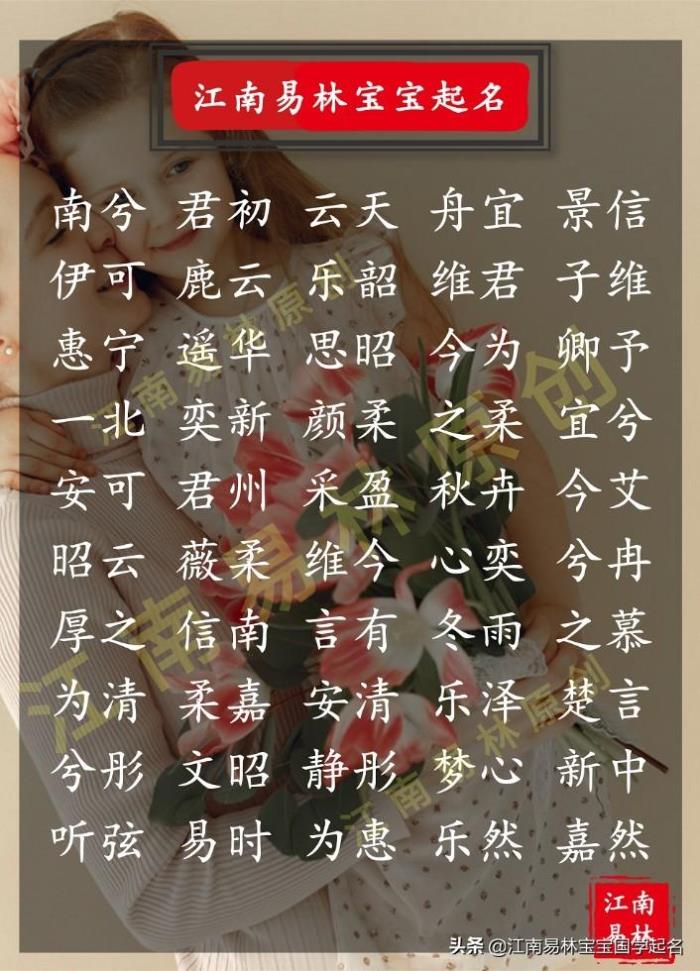 江南易林宝宝起名
南兮 君初 云天 舟宜 景信
伊可 鹿云 乐韶 维君 子维
惠宁 遥华 思昭 今为 卿予
一北 奕新 颜柔 之柔 宜兮
安可 君州 采盈 秋卉 今艾
昭云 薇柔 维今 心奕 兮冉
厚之 信南 言有 冬雨 之慕
为清 柔嘉 安清 乐泽 楚言
兮彤 文昭 静彤 梦心 新中
听弦 易时 为惠 乐然 嘉然
江南易林原创
江南易林原创
江南易林原创
江南
易林
头条 @江南易林宝宝国学起名